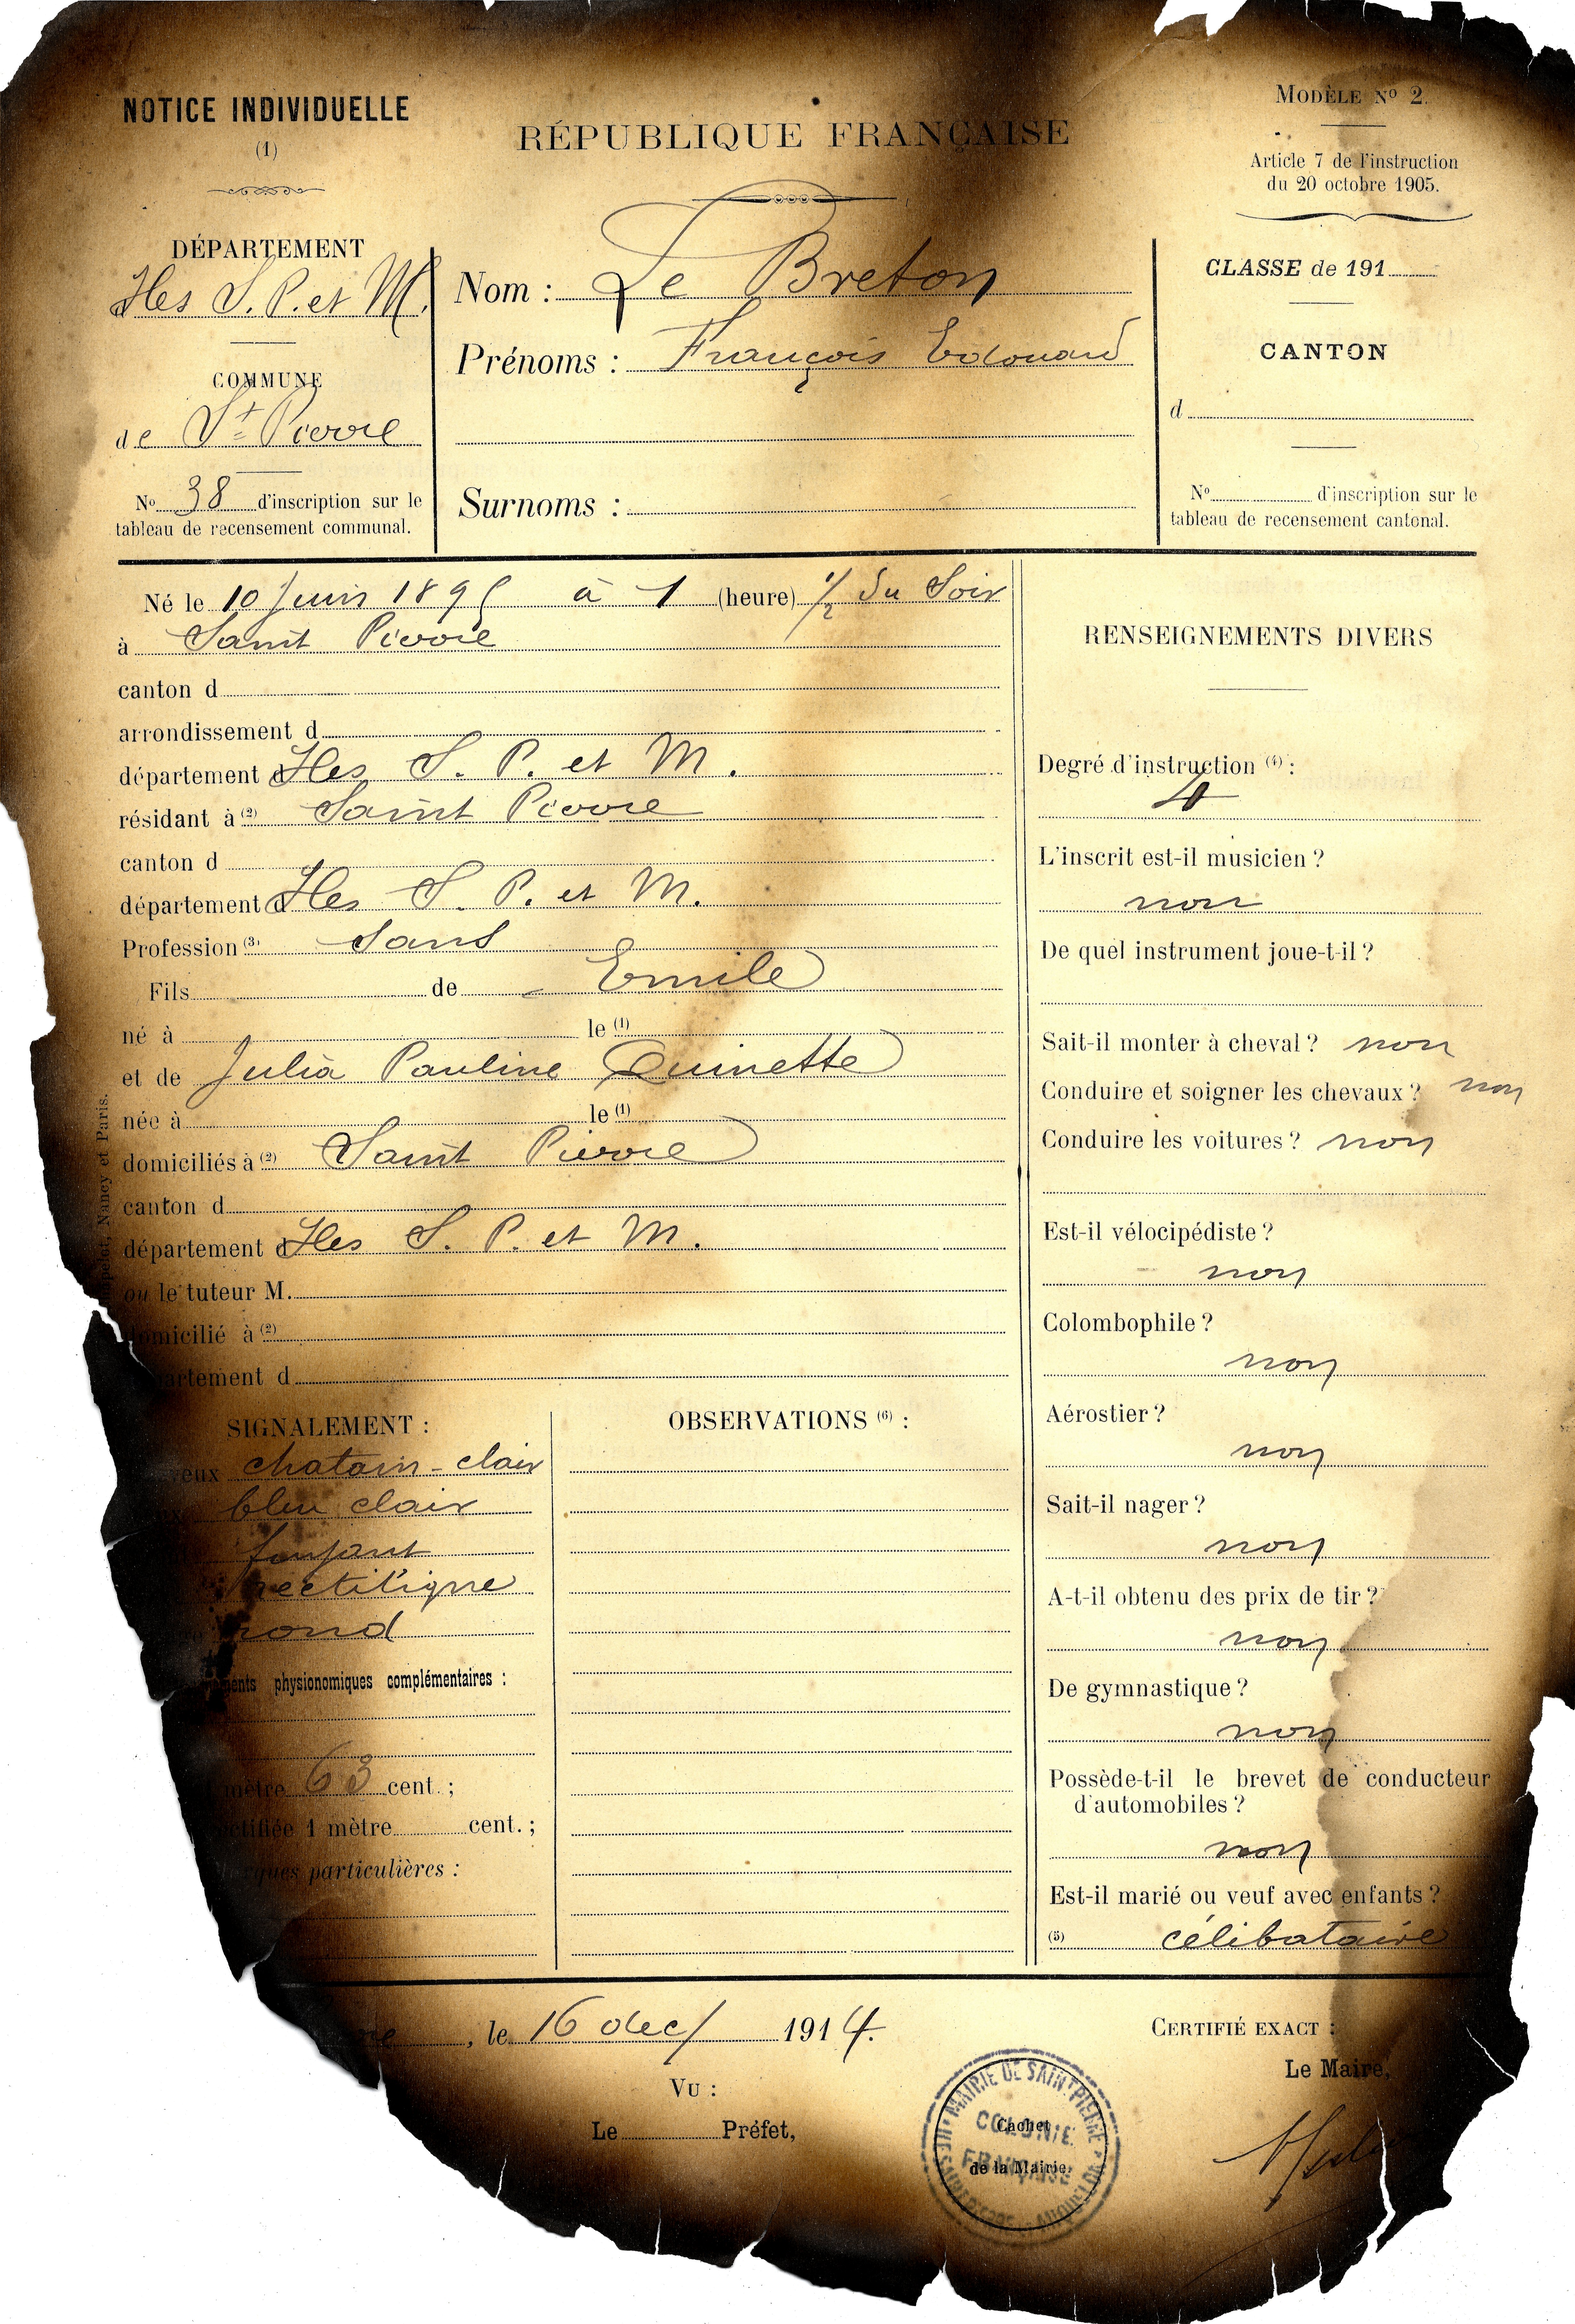 NOTICE INDIVIDUELLE
(1)
DÉPARTEMENT
Iles S. P. et M.
COMMUNE
de St Pierre
No 38 d'inscription sur le
tableau de recensement communal.
RÉPUBLIQUE FRANÇAISE
Nom : Le Breton
Prénoms : François Edouard
Surnoms :
MODÈLE No 2.
Article 7 de l'instruction
du 20 octobre 1905.
CLASSE de 191
CANTON
d
No d'inscription sur le
tableau de recensement cantonal.
Né le 10 Juin 1895 à 1 (heure) 1/2 du Soir
à Saint Pierre
canton d
arrondissement d
département d Iles S. P. et M.
résidant à (2) Saint Pierre
canton d
département d Iles S. P. et M.
Profession (3) Sans
Fils de Emile
né à le (1)
et de Julia Pauline Quinette
née à le (1)
domiciliés à (2) Saint Pierre
canton d
département d Iles S. P. et M.
ou le tuteur M.
domicilié à (2)
artement d
Nancy et Paris.
SIGNALEMENT :
veux chatain-clair
bleu clair
fuyant
rectiligne
rond
ments physionomiques complémentaires :
mètre 63 cent. ;
ctifiée 1 mètre cent. ;
arques particulières :
OBSERVATIONS (6) :
RENSEIGNEMENTS DIVERS
Degré d'instruction (4) :
4
L'inscrit est-il musicien ?
non
De quel instrument joue-t-il ?
Sait-il monter à cheval ? non
Conduire et soigner les chevaux ? non
Conduire les voitures ? non
Est-il vélocipédiste ?
non
Colombophile ?
non
Aérostier ?
non
Sait-il nager ?
non
A-t-il obtenu des prix de tir ?
non
De gymnastique ?
non
Possède-t-il le brevet de conducteur
d'automobiles ?
non
Est-il marié ou veuf avec enfants ?
(5) célibataire
re, le 16 dec/ 1914.
VU :
Le Préfet,
MAIRIE DE SAINT PIERRE
COLONIE
FRANÇAISE
Cachet
de la Mairie.
CERTIFIÉ EXACT :
Le Maire,